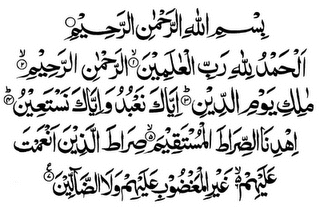 بِسْمِ اللهِ الرَّحْمٰنِ الرَّحِيْمِ
اَلْحَمْدُ لِلّٰهِ رَبِّ الْعٰلَمِيْنَ ۱ الرَّحْمٰنِ الرَّحِيْمِ ۲
مٰلِكِ يَوْمِ الدِّيْنِ ۳ اِيَّاكَ نَعْبُدُ وَاِيَّاكَ نَسْتَعِيْنُ ۴
اِهْدِنَا الصِّرَاطَ الْمُسْتَقِيْمَ ۵ صِرَاطَ الَّذِيْنَ اَنْعَمْتَ
عَلَيْهِمْ ۶ غَيْرِ الْمَغْضُوْبِ عَلَيْهِمْ وَلَا الضَّآلِّيْنَ ۷